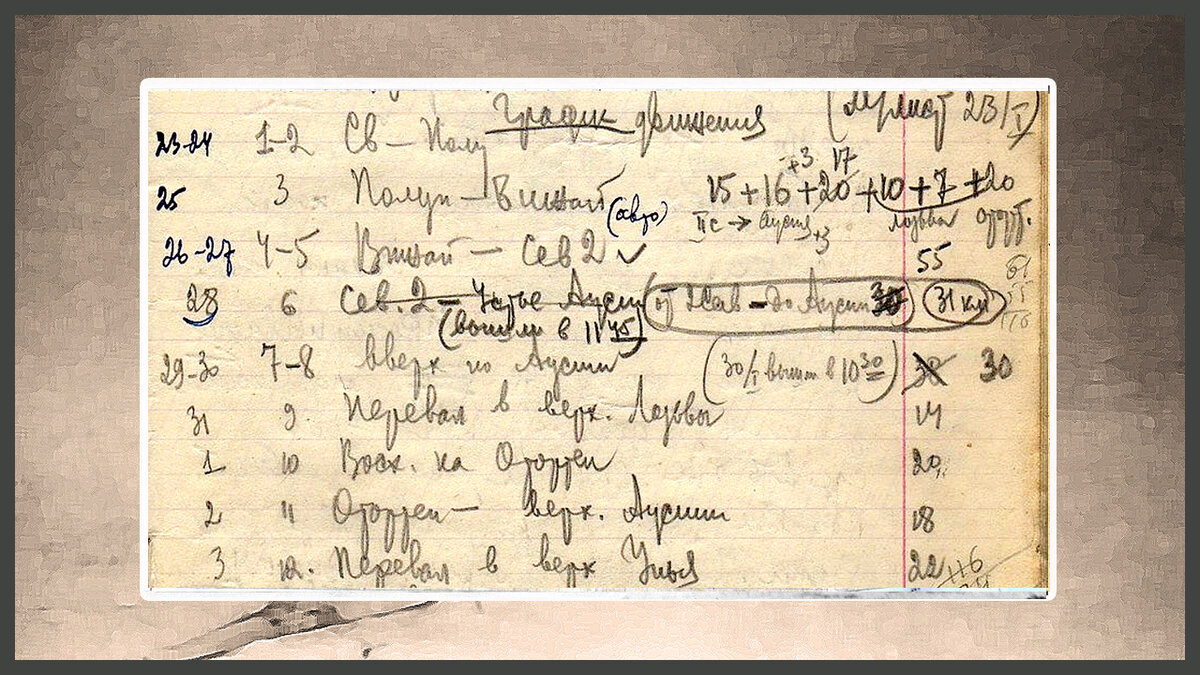 График движения
23-24 1-2 Св - Полу
15 + 16 +3 + 20 17 + 10 + 7 + 20
25 3 Полун - Вижай (авто)
IIс → Ауспия +3 Лозьва Оторт.
26-27 4-5 Вижай - Сев 2 ✓ 55
28 6 Сев. 2 - Устье Ауспии (от 2 Сев - до Ауспии 30) (31 км)
(вышли в 11 45)
29-30 7-8 вверх по Ауспии (30/I вышли в 10 30) 30 30
31 9. Перевал в верх. Лозьвы 14
1 10 Восх. на Отортен 20
2 11 Отортен - верх. Ауспии 18
3 12. Перевал в верх Унья 22
116